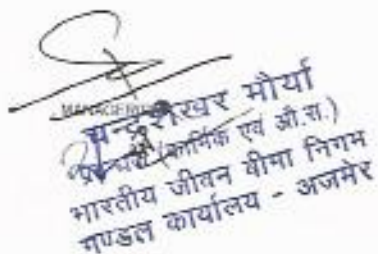 MANAGER
चन्द्रशेखर मौर्या
प्रबन्धक (कार्मिक एवं औ.स.)
भारतीय जीवन बीमा निगम
मण्डल कार्यालय - अजमेर